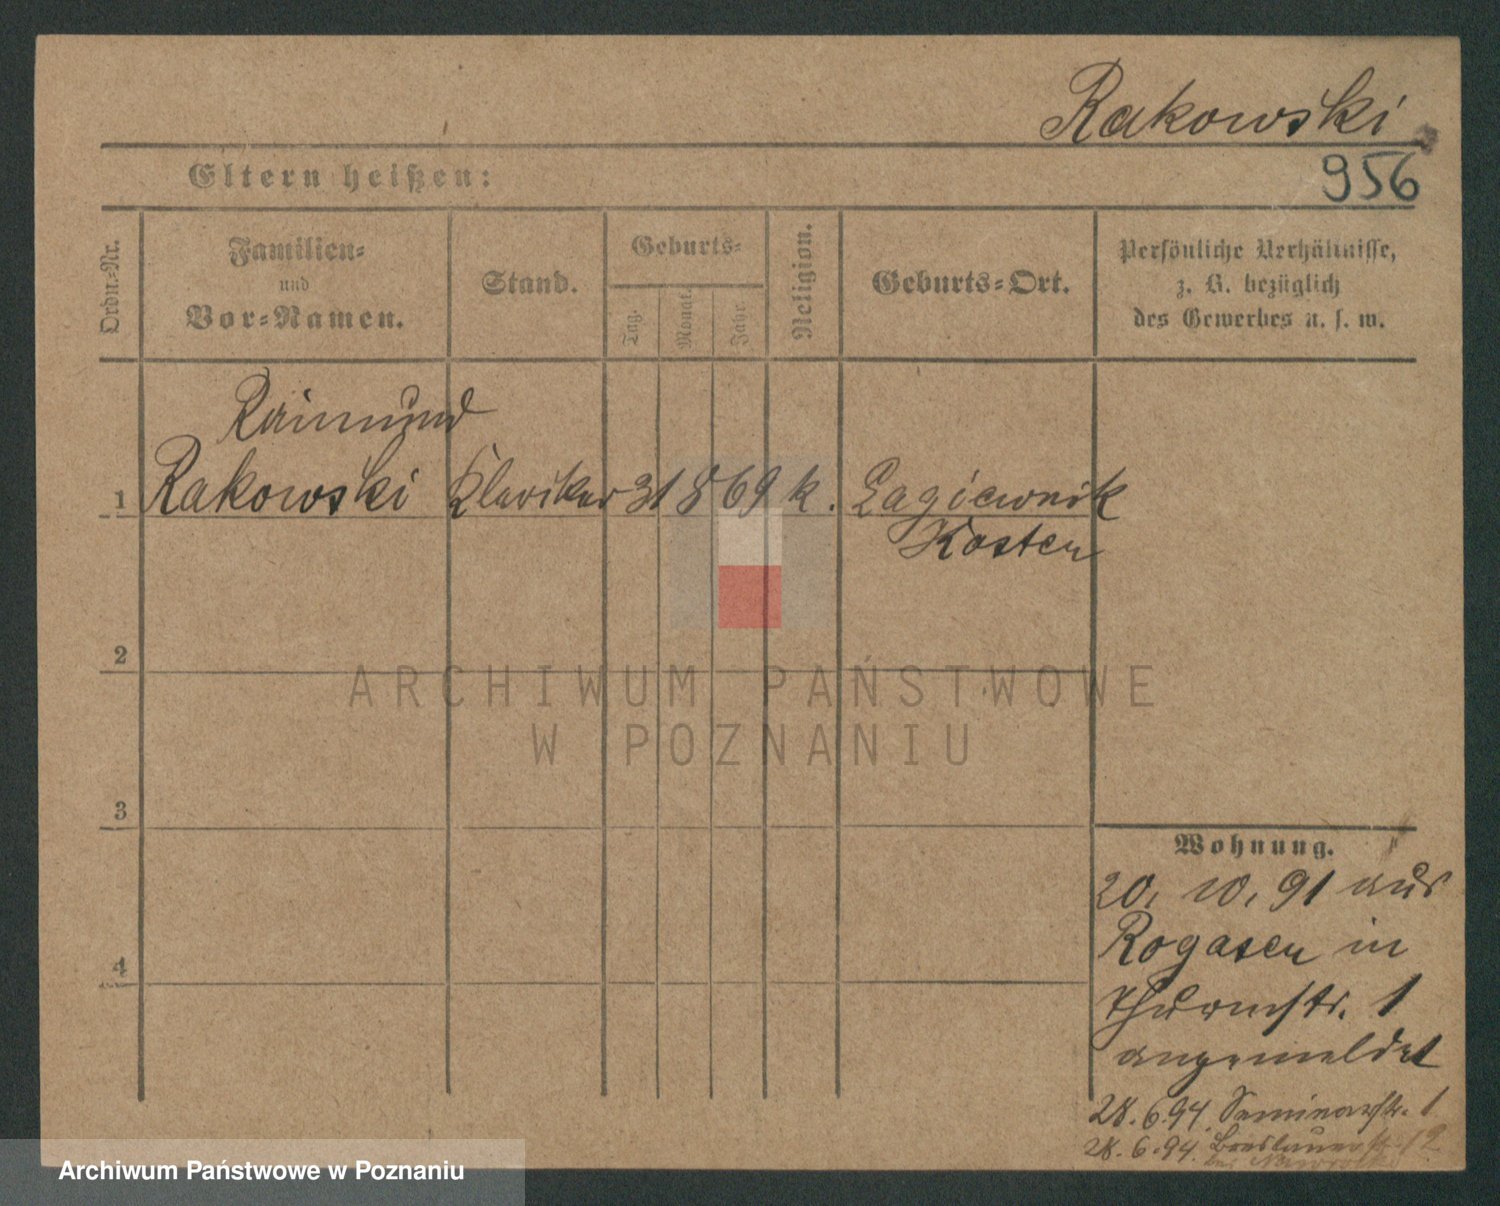 Rakowski
956
Eltern heißen:
Ordn.-Nr.
Familien-
und
Vor-Namen.
Stand.
Geburts-
Tag.
Monat.
Jahr.
Religion.
Geburts-Ort.
Persönliche Verhältnisse,
z. B. bezüglich
des Gewerbes u. s. w.
Raimund
1 Rakowski Kleriker 31 8 69 k. Lagiewnik
Kosten
2
3
4
ARCHIWUM PAŃSTWOWE
W POZNANIU
Wohnung.
20. 10. 91 aus
Rogasen in
Thurmstr. 1
angemeldet
28.6.94. Seminarstr. 1
28.6.94. Breslauerstr. 12
Archiwum Państwowe w Poznaniu